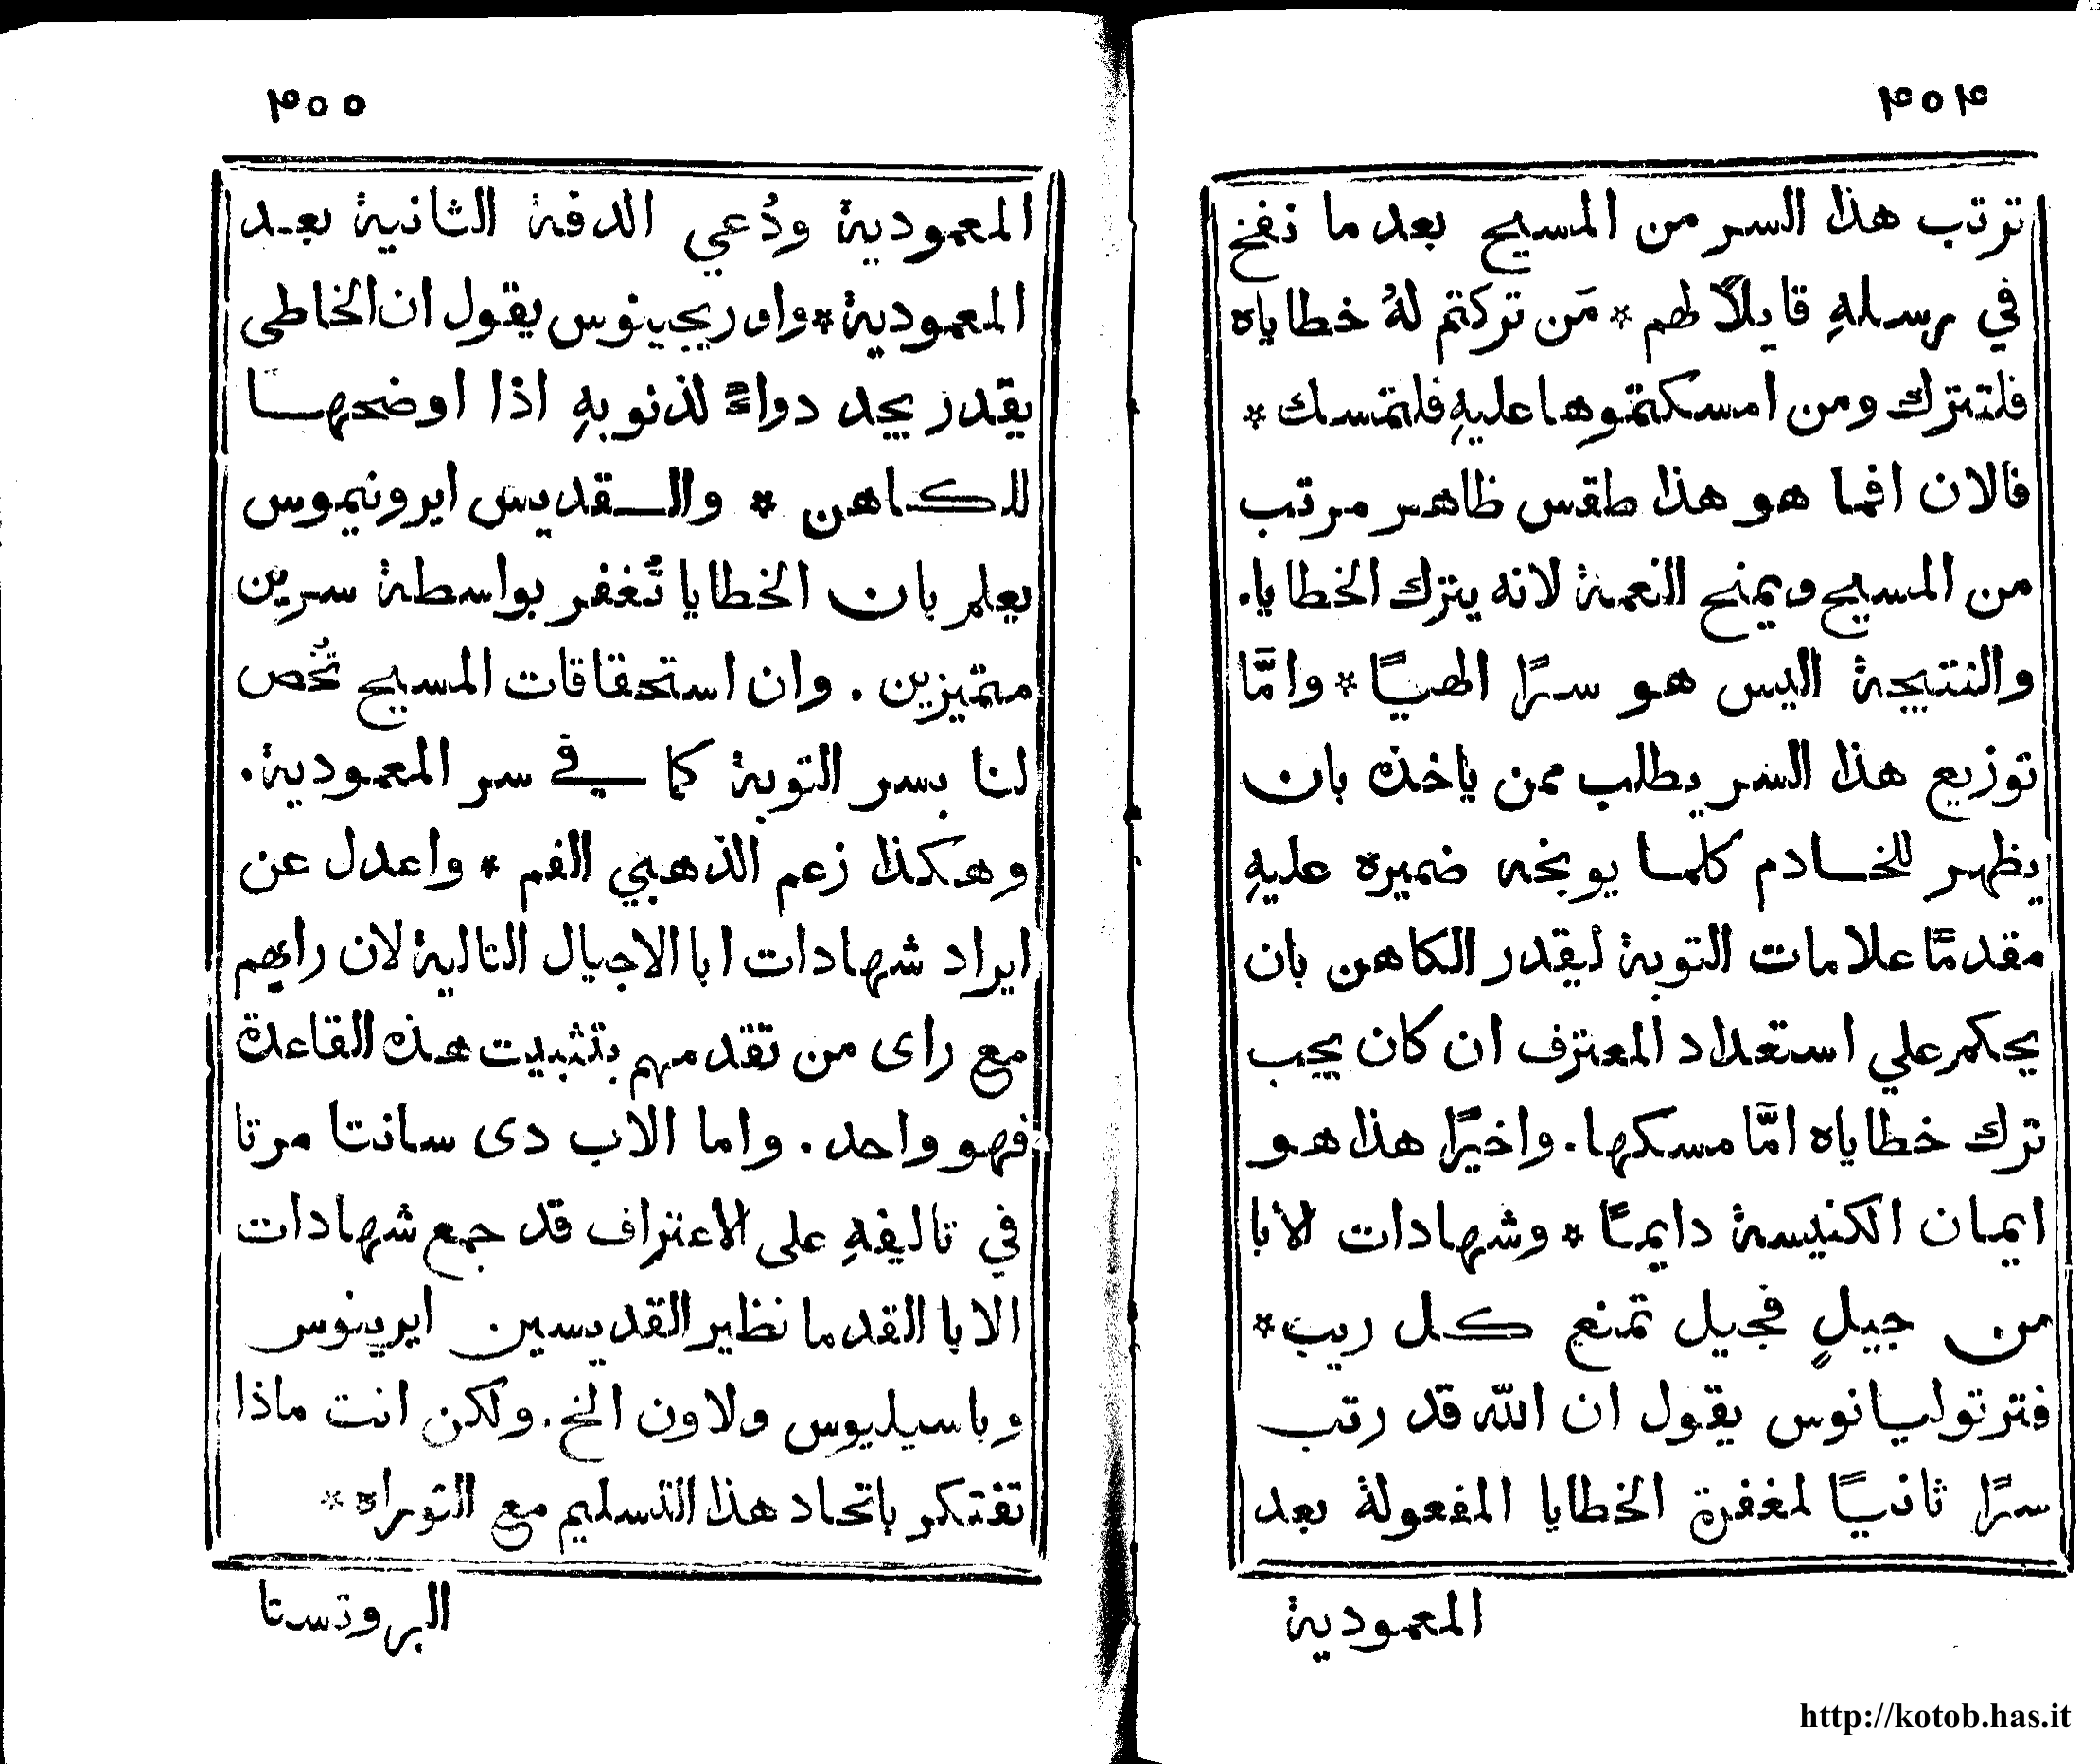 ٣٥٤
ترتب هذا السر من المسيح بعد ما نفخ
في رسلهِ قايلاً لهم * مَن تركتم لهُ خطاياه
فلتترك ومن امسكتموها عليهِ فلتمسك *
فالان افما هو هذا طقس ظاهر مرتب
من المسيح ويمنح النعمة لانه يترك الخطايا.
والنتيجة اليس هو سرًا الهيًا * وامَّا
توزيع هذا السر يطلب ممن ياخذه بان
يظهر للخادم كلما يوبخه ضميره عليهِ
مقدمًا علامات التوبة ليقدر الكاهن بان
يحكم علي استعداد المعترف ان كان يجب
ترك خطاياه امَّا مسكها. واخيرًا هذا هو
ايمان الكنيسة دايمًا * وشهادات الابا
من جيلٍ فجيل تمنع كل ريب *
فترتوليانوس يقول ان الله قد رتب
سرًا ثانيًا لمغفرة الخطايا المفعولة بعد
المعمودية
٣٥٥
المعمودية ودُعي الدفة الثانية بعد
المعمودية * واوريجينوس يقول ان الخاطى
يقدر يجد دواءً لذنوبهِ اذا اوضحها
للكاهن * والقديس ايرونيموس
يعلم بان الخطايا تُغفر بواسطة سرين
متميزين. وان استحقاقات المسيح تُخص
لنا بسر التوبة كما في سر المعمودية.
وهكذا زعم الذهبي الفم * واعدل عن
ايراد شهادات ابا الاجيال التالية لان رايهم
مع راى من تقدمهم بتثبيت هذه القاعدة
فهو واحد. واما الاب دى سانتا مرتا
في تاليفهِ على الاعتراف قد جمع شهادات
الابا القدما نظير القديسين ايرينوس
وباسيليوس ولاون الخ. ولكن انت ماذا
تفتكر باتحاد هذا التسليم مع التوراه *
البروتستا
http://kotob.has.it